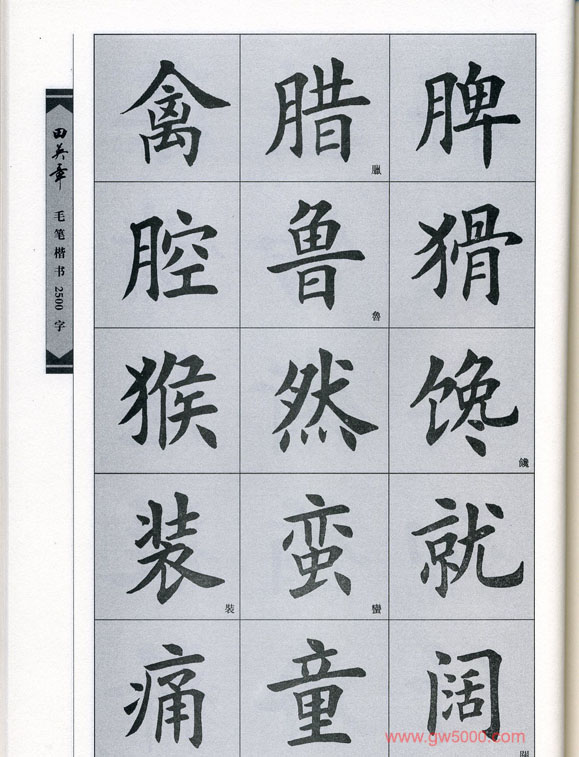 田英章 毛笔楷书 2500 字
禽 腊 臘 脾
腔 鲁 魯 猾
猴 然 馋 饞
装 裝 蛮 蠻 就
痛 童 阔
www.gw5000.com